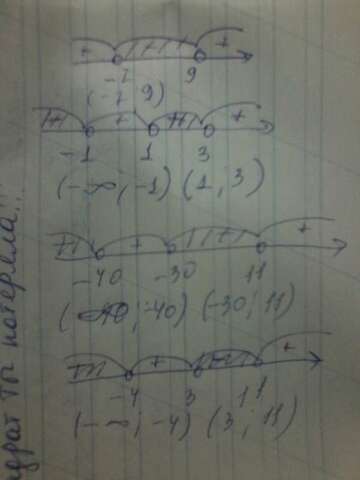 + - +
-7 9
(-7 9)
- + - +
-1 1 3
(-∞; -1) (1; 3)
- + - +
-40 -30 11
(-40) (-30; 11)
- + - +
-4 3 11
(-∞; -4) (3; 11)
ты потеряла!!!